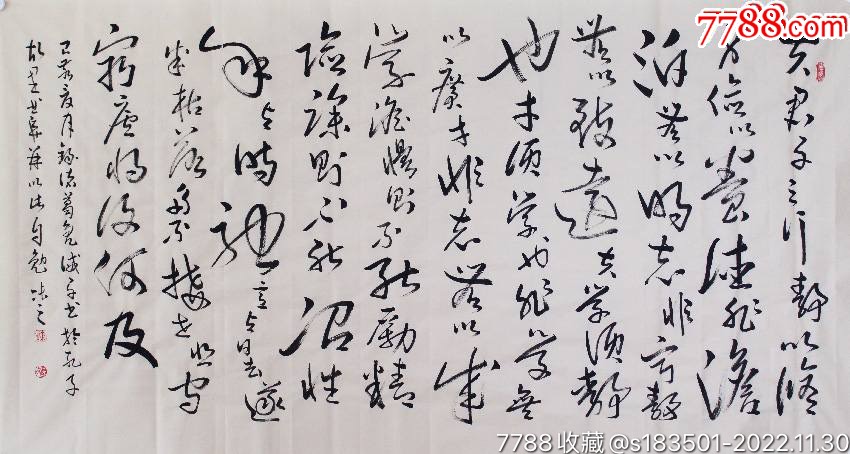 夫君子之行静以修
身俭以养德非澹
泊无以明志非宁静
无以致远夫学须静
也才须学也非学无
以广才非志无以成
学淫慢则不能励精
险躁则不能治性
年与时驰意与日去遂
成枯落多不接世悲守
穷庐将复何及
己亥夏月录诸葛亮诫子书於孔子
故里曲阜并以此自勉
7788.com
7788收藏@s183501-2022.11.30